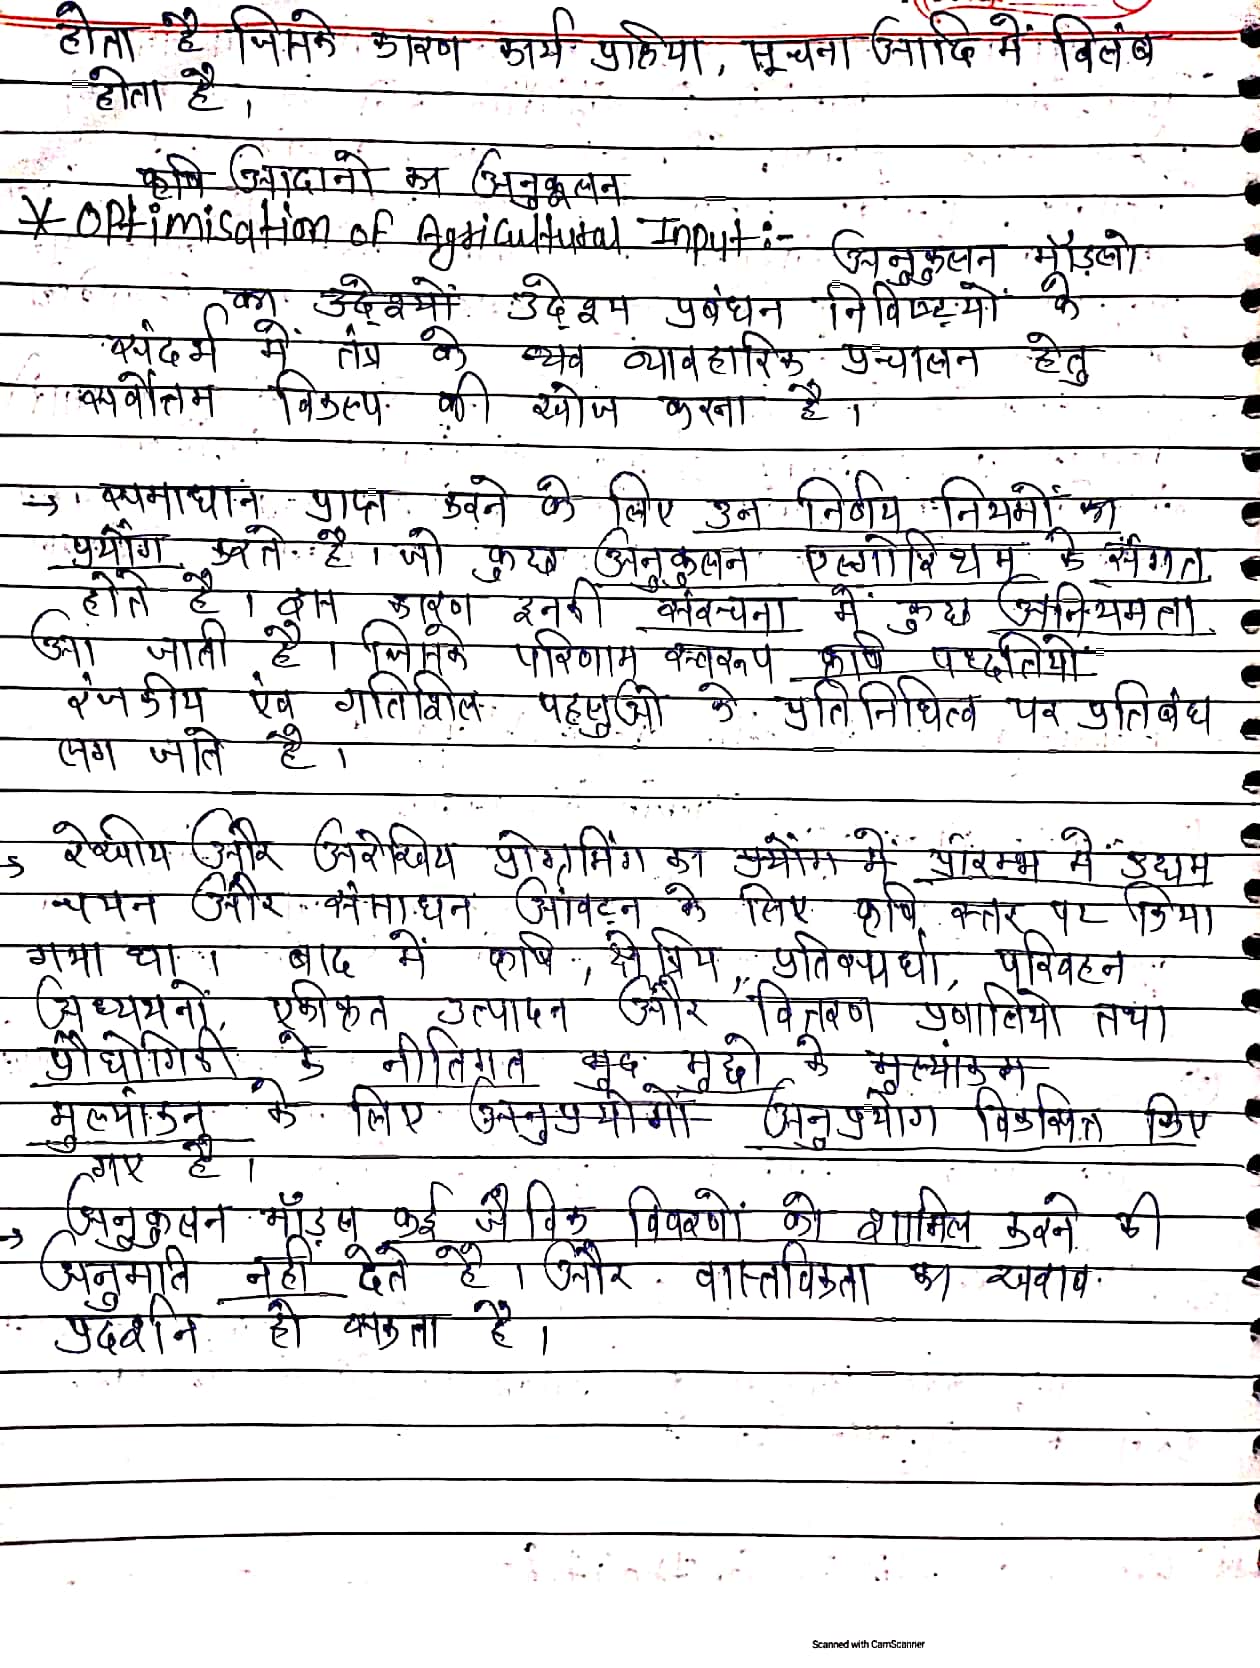 होता है जिसके कारण कार्य प्रक्रिया, सूचना आदि में विलंब
होता है।
कृषि आदानों का अनुकूलन
* Optimisation of Agricultural Input :- अनुकुलन मॉडलो
का उद्देश्यों उद्देश्य प्रबंधन निविष्टयों के
संदर्भ में तंत्र के व्यव व्यावहारिक प्रचालन हेतु
सर्वोत्तम विकल्प की खोज करना है।
→ समाधान प्राप्त करने के लिए उन निर्णय नियमों का
प्रयोग करते है। जो कुछ अनुकुलन एल्गोरिथम के संगत
होते है। इस कारण इनकी संरचना में कुछ अनियमता
आ जाती है। जिसके परिणाम स्वरूप कृषि पध्दतियो
रंजकीय एंव गतिशिल पहलुओ के प्रतिनिधित्व पर प्रतिबंध
लग जाते है।
→ रेखीय और अरेखिय प्रोग्रामिंग का प्रयोग में प्रारम्भ में उद्यम
चयन और संसाधन आंवटन के लिए कृषि स्तर पर किया
गया था। बाद में कृषि, क्षेत्रिय, प्रतिस्पर्धा, परिवहन
अध्ययनों, एकीकृत उत्पादन और वितरण प्रणालियो तथा
प्रौधोगिकी के नीतिगत मुद मुद्दो के मुल्यांकम
मुल्यांकन के लिए अनुप्रयोगो अनुप्रयोग विकसित किए
गए है।
→ अनुकुलन मॉडल कई जैविक विवरणों को शामिल करने की
अनुमति नहीं देते है। और वास्तविकता का खराब
प्रदर्शन हो सकता है।
Scanned with CamScanner